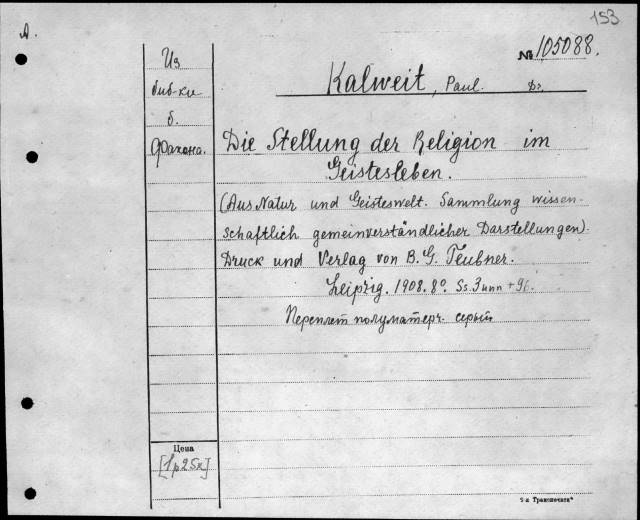 153
А.
№ 105088.
Из
биб-ки
б.
Kalweit, Paul. Dr.
Die Stellung der Religion im
Geistesleben.
(Aus Natur und Geisteswelt. Sammlung wissen-
schaftlich gemeinverständlicher Darstellungen).
Druck und Verlag von B. G. Teubner.
Leipzig. 1908. 8°. Ss. 3 нпп + 96.
Переплет полуматерч. серый
Цена
[1р25к]